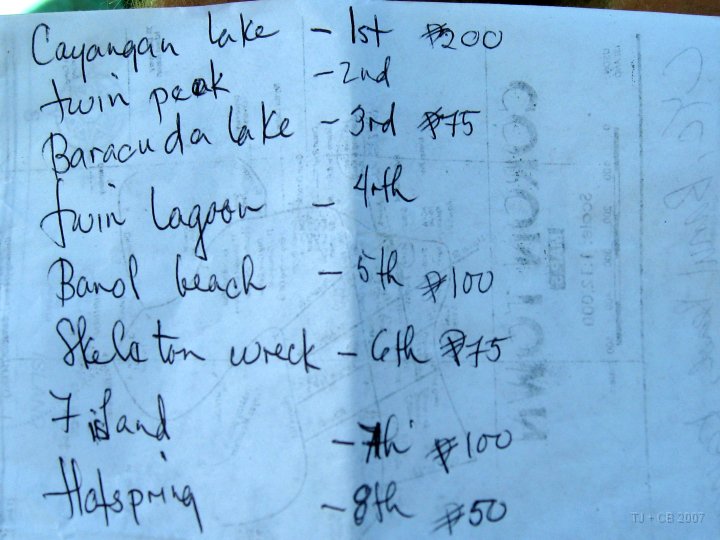 Cayangan lake - 1st ₱200
twin peak - 2nd
Baracuda lake - 3rd ₱75
twin lagoon - 4rth
Banol beach - 5th ₱100
Skelaton wreck - 6th ₱75
7 island - 7th ₱100
Hotspring - 8th ₱50
CORON TOWN
Scale 1:2,000
TJ + CB 2007